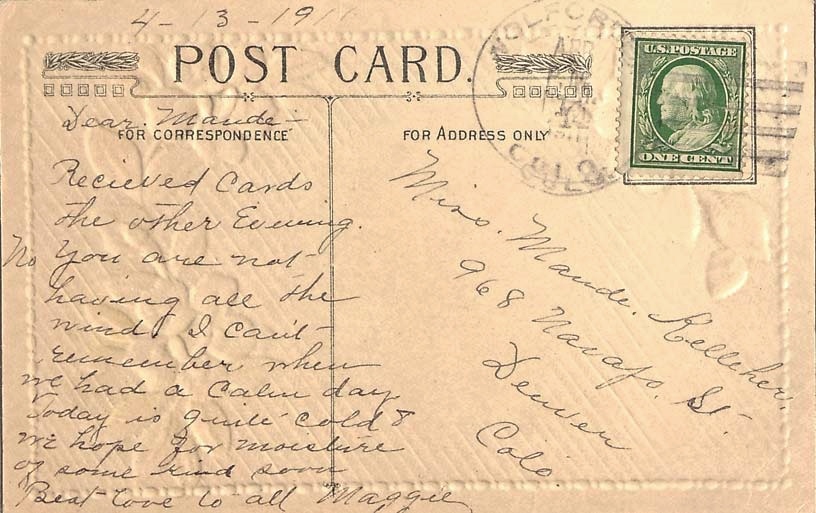 4-13-1911
POST CARD.
Dear Maude-
FOR CORRESPONDENCE
Recieved Cards
the other Evening.
No You are not
having all the
wind, I can't
remember when
we had a Calm day
Today is quite cold &
we hope for moisture
of some kind soon
Best love to all Maggie
FOR ADDRESS ONLY
WOLFORD
APR
COLO.
U.S. POSTAGE
ONE CENT
Miss. Maude. Kelleher.
968 Navajo. St.
Denver
Colo